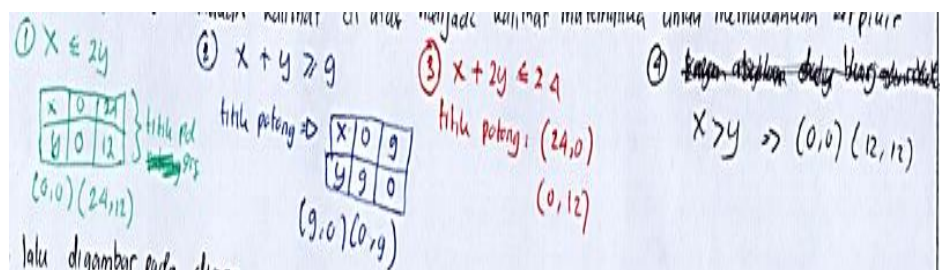 kalimat di atas menjadi kalimat matematika untuk memudahkan berpikir
① x ≤ 2y
x 0 24
y 0 12
titik pd
grs
(0,0) (24,12)
② x + y ≥ 9
titik potong ⇒
x 0 9
y 9 0
(9,0) (0,9)
③ x + 2y ≤ 24
titik potong : (24,0)
(0,12)
④
x > y ⇒ (0,0) (12,12)
lalu digambar pada